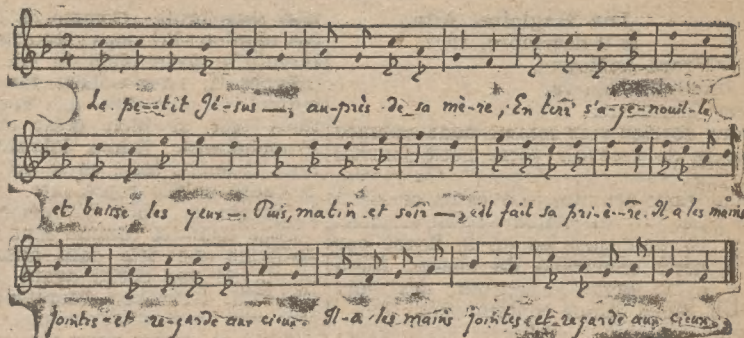 2
4
Le pe-tit Jé-sus —, au-près de sa mè-re, En terr' s'a-ge-nouil-le
et baisse les yeux —. Puis, matin et soir —, il fait sa pri-è-re. Il a les mains
jointes et re-garde aux cieux. Il a les mains jointes et regarde aux cieux.